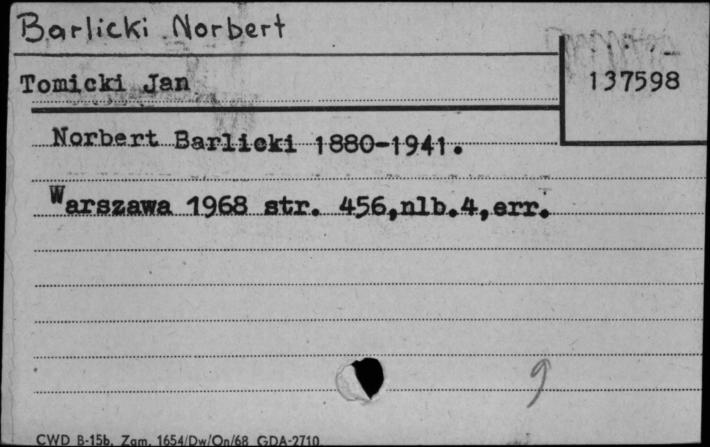 Barlicki Norbert
Tomicki Jan
137598
Norbert Barlicki 1880-1941.
Warszawa 1968 str. 456,nlb.4,err.
9
CWD B-15b. Zam. 1654/Dw/On/68 GDA-2710